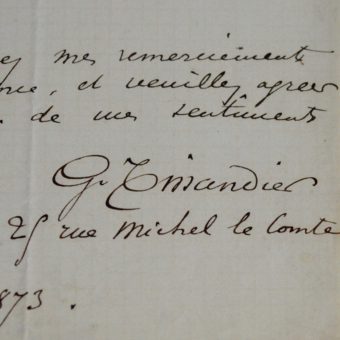 ey mes remerciements
nce, et veuillez agréer
. de mes sentiments
G. Tissandier
25 rue Michel le Comte
1873.